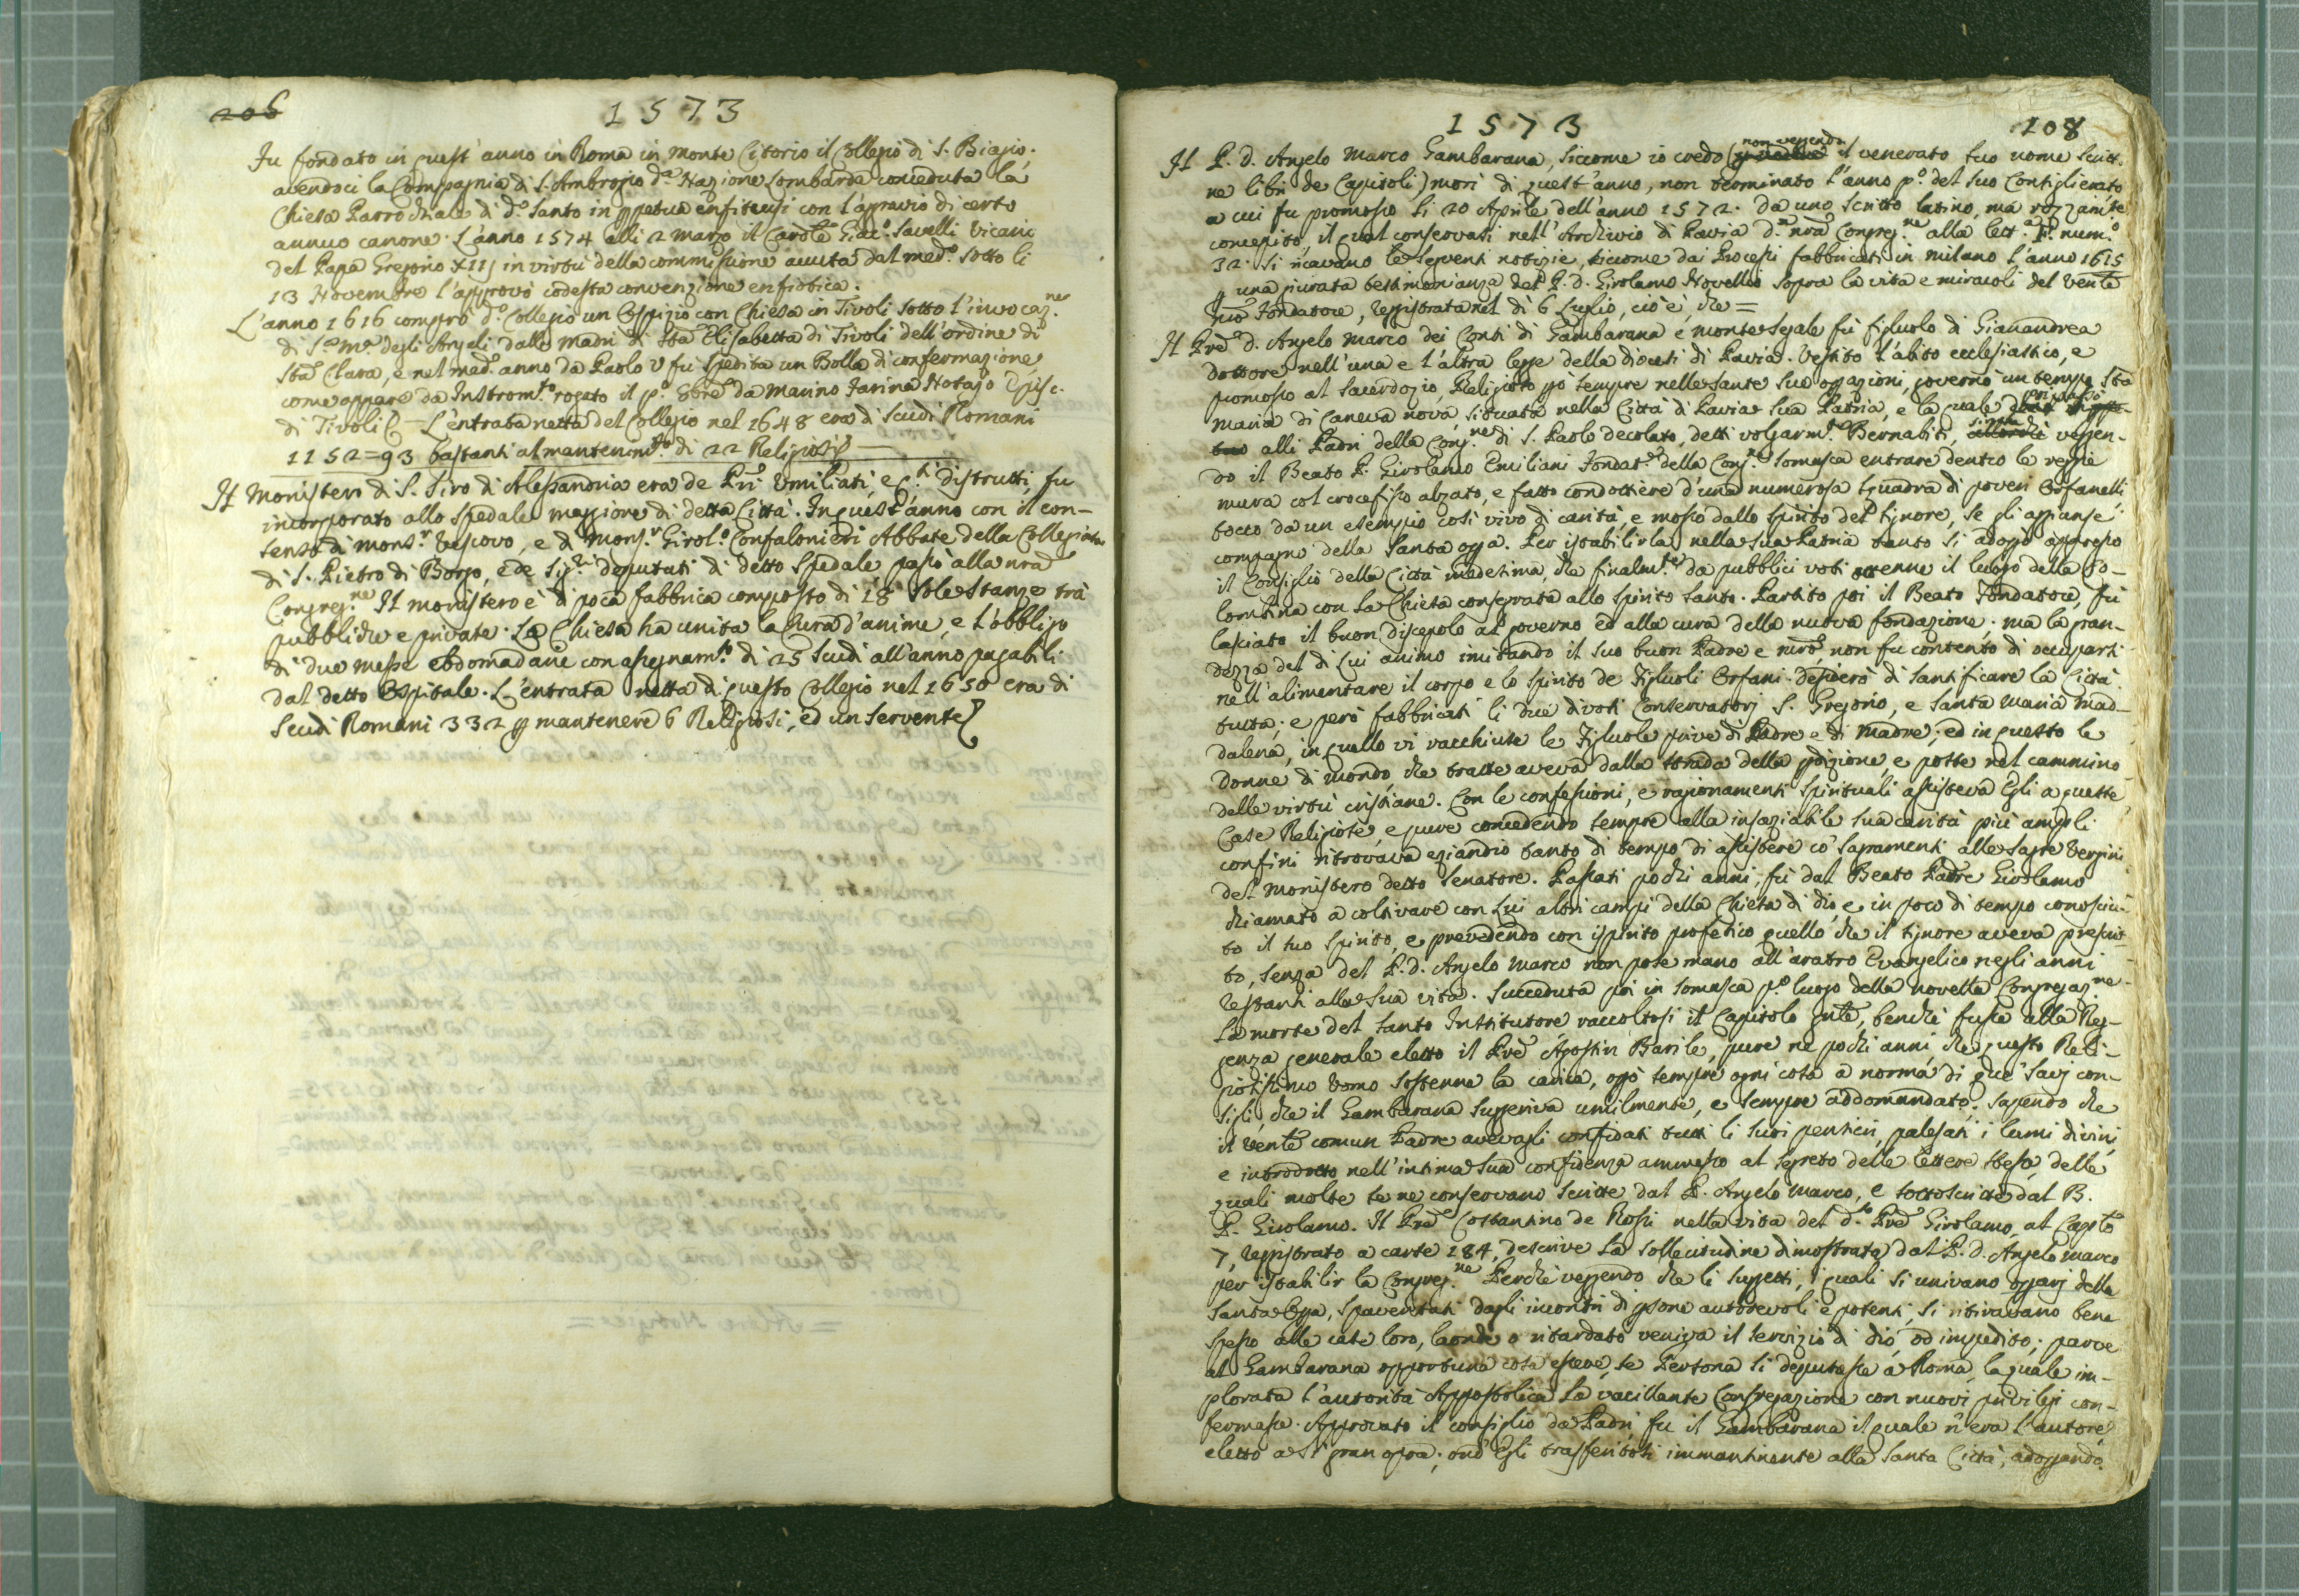 206
1573
Fu fondato in quest'anno in Roma in Monte Citorio il Collegio di S. Biagio.
avendoci la Compagnia di S. Ambrogio d.a Nazione Lombarda conceduta la
Chiesa Parrochiale di d.o Santo in ppetua enfiteusi con l'agravio di certo
annuo canone. L'anno 1574 alli 2 Marzo il Card.le Giac.o Savelli Vicario
del Papa Gregorio XIII in virtù della commissione avuta dal med.o sotto li
13 Novembre l'approvò codesta convenzione enfiotica.
L'anno 1616 comprò d.o Collegio un Ospizio con Chiesa in Tivoli sotto l'invocaz.ne
di S.a M.a degli Angeli dalle Madri di Sta Elisabetta di Tivoli dell'ordine di
Sta Clara, e nel med.o anno da Paolo V fu spedita un Bolla di confermazione
come appare da Instrom.to rogato il p.o Ebre da Marino Farina Notajo Episc.
di Tivoli — L'entrata netta del Collegio nel 1648 era di Scudi Romani
1152=93 bastanti al mantenim.to di 22 Religiosi —
Il Monistero di S. Siro di Alessandria era de Pri Umiliati, e q.ti distrutti, fu
incorporato allo Spedale maggiore di detta Città. In quest'anno con il con-
senso di Mons.r Vescovo, e di Mons.r Girol.o Confalonieri Abbate della Collegiata
di S. Pietro di Borgo, e de Sig.ri deputati di detto Spedale passò alla nra
Congreg.ne Il monistero è di poca fabbrica composto di 18 sole stanze trà
pubbliche e private. La Chiesa ha unita la Cura d'anime, e l'obbligo
di due messe ebdomadarie con assegnam.to di 25 Scudi all'anno pagabili
dal detto Ospitale. L'entrata netta di questo Collegio nel 1650 era di
Scudi Romani 332 p mantenere 6 Religiosi, ed un Servente
1573
108
Il P. D. Angelo Marco Gambarana, siccome io credo (non vegendo il venerato suo nome scritt.
ne libri de Capitoli) morì di quest'anno, non terminato l'anno p.o del suo Consiglierato
a cui fu promosso li 20 Aprile dell'anno 1572. Da uno scritto latino, ma rozzam.te
concepito, il qual conservasi nell'Archivio di Pavia d. nra Congreg.ne alla lett.a F. num.o
32. Si ricavano le seguenti notizie, siccome dai Processi fabbricati in Milano l'anno 1615
p una giurata testimonianza del P. D. Girolamo Novelli sopra la vita e miracoli del Vente
nro Fondatore, reggistrata nel dì 6 Luglio, cioè, che =
Il Pre D. Angelo Marco dei Conti di Gambarana e Montesegale fù figluolo di Gianandrea
Dottore nell'una e l'altra legge della diocesi di Pavia. Vestito l'abito ecclesiastico, e
promosso al Sacerdozio, Religioso pò sempre nelle sante sue opazioni, governò un tempo Sta
Maria di Caneva nova situata nella Città di Pavia sua Patria, e la quale poi passò
alli Padri della Cong.ne di S. Paolo decolato, detti volgarm.te Bernabiti, veggen-
do il Beato P. Girolamo Emiliani Fondat.re della Cong.ne Somasca entrare dentro le regie
mura col crocefisso alzato, e fatto condottiere d'una numerosa squadra di poveri Orfanelli
tocco da un esempio così vivo di carità, e mosso dallo spirito del signore, se gli aggiunse
compagno della Santa opa. Per istabilirla nella sua Patria tanto si adopò appresso
il Consiglio della Città medesima, che finalm.te da pubblici voti ottenne il luogo della Co-
lombina con la Chiesa consegrata allo Spirito Santo. Partito poi il Beato Fondatore, fù
lasciato il buon discepolo al governo ed alla cura della nuova fondazione. Ma la gran-
dezza del di Lui animo imitando il suo buon Padre e nro, non fu contento di occuparsi
nell'alimentare il corpo e lo spirito de Figluoli Orfani. Desiderò di santificare la Città
tutta, e però fabbricati li due divoti Conservatorj S. Gregorio, e Santa Maria Mad-
dalena, in quello vi racchiuse le Figluole prive di Padre e di Madre; ed in questo le
Donne di mondo, che tratte aveva dalla strada della pdizione, e poste nel cammino
delle virtù cristiane. Con le confessioni, e ragionamenti spirituali assisteva Egli a queste
Case Religiose, e pure concedendo sempre alla insaziabile sua carità più ampli
confini ritrovava eziandio tanto di tempo di assistere co' sagramenti alle sagre Vergini
del Monistero detto Senatore. Passati pochi anni, fù dal Beato Padre Girolamo
chiamato a coltivare con Lui altri campi della Chiesa di dio, e in poco di tempo conosciu-
to il suo spirito, e prevedendo con ispirito profetico quello che il signore aveva prescrit-
to, senza del P. D. Angelo Marco non pose mano all'aratro Evangelico negli anni
restanti alla sua vita. Succeduta poi in Somasca p.o luogo della novella Congregaz.ne
la morte del Santo Institutore raccoltosi il Capitolo gnle, benchè fusse alla Reg-
genza generale eletto il Pre Agostin Barile, pure ne pochi anni che questo Reli-
giosissimo Uomo sostenne la carica, opò sempre ogni cosa a norma di que' savj con-
sigli, che il Gambarana suggeriva umilmente, e sempre addomandato. Sapendo che
il Vente comun Padre avevagli confidati tutti li suoi pensieri, palesati i lumi divini,
e introdotto nell'intima sua confidenza ammesso al segreto delle lettere stesse, delle
quali molte se ne conservano scritte dal P. Angelo Marco, e sottoscritte dal B.
P. Girolamo. Il Pre Costantino de Rossi nella vita del d.to Pre Girolamo, al Caplo
7, reggistrato a carte 184, descrive la sollecitudine dimostrata dal P. D. Angelo Marco
per istabilir la Congreg.ne Perchè veggendo che li suggetti, i quali si univano opparj della
Santa Opa, spaventati dagli incontri di psone autorevoli e potenti, si ritiravano bene
spesso alle case loro, laonde o ritardato veniva il servizio di dio, od impedito; parve
al Gambarana opportuna cosa essere, se Persona si deputasse a Roma, la quale im-
plorata l'autorità Appostolica la vacillante Congregazione con nuovi privilegi con-
fermasse. Approvato il consiglio da Padri, fu il Gambarana il quale n'era l'autore,
eletto a sì gran opra; ond'Egli trasferitosi immantinente alla Santa Città, adoppando